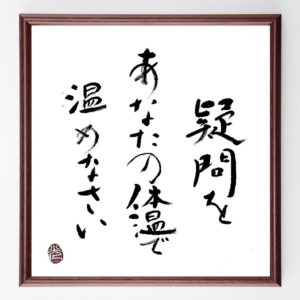 疑問を
あなたの体温で
温めなさい